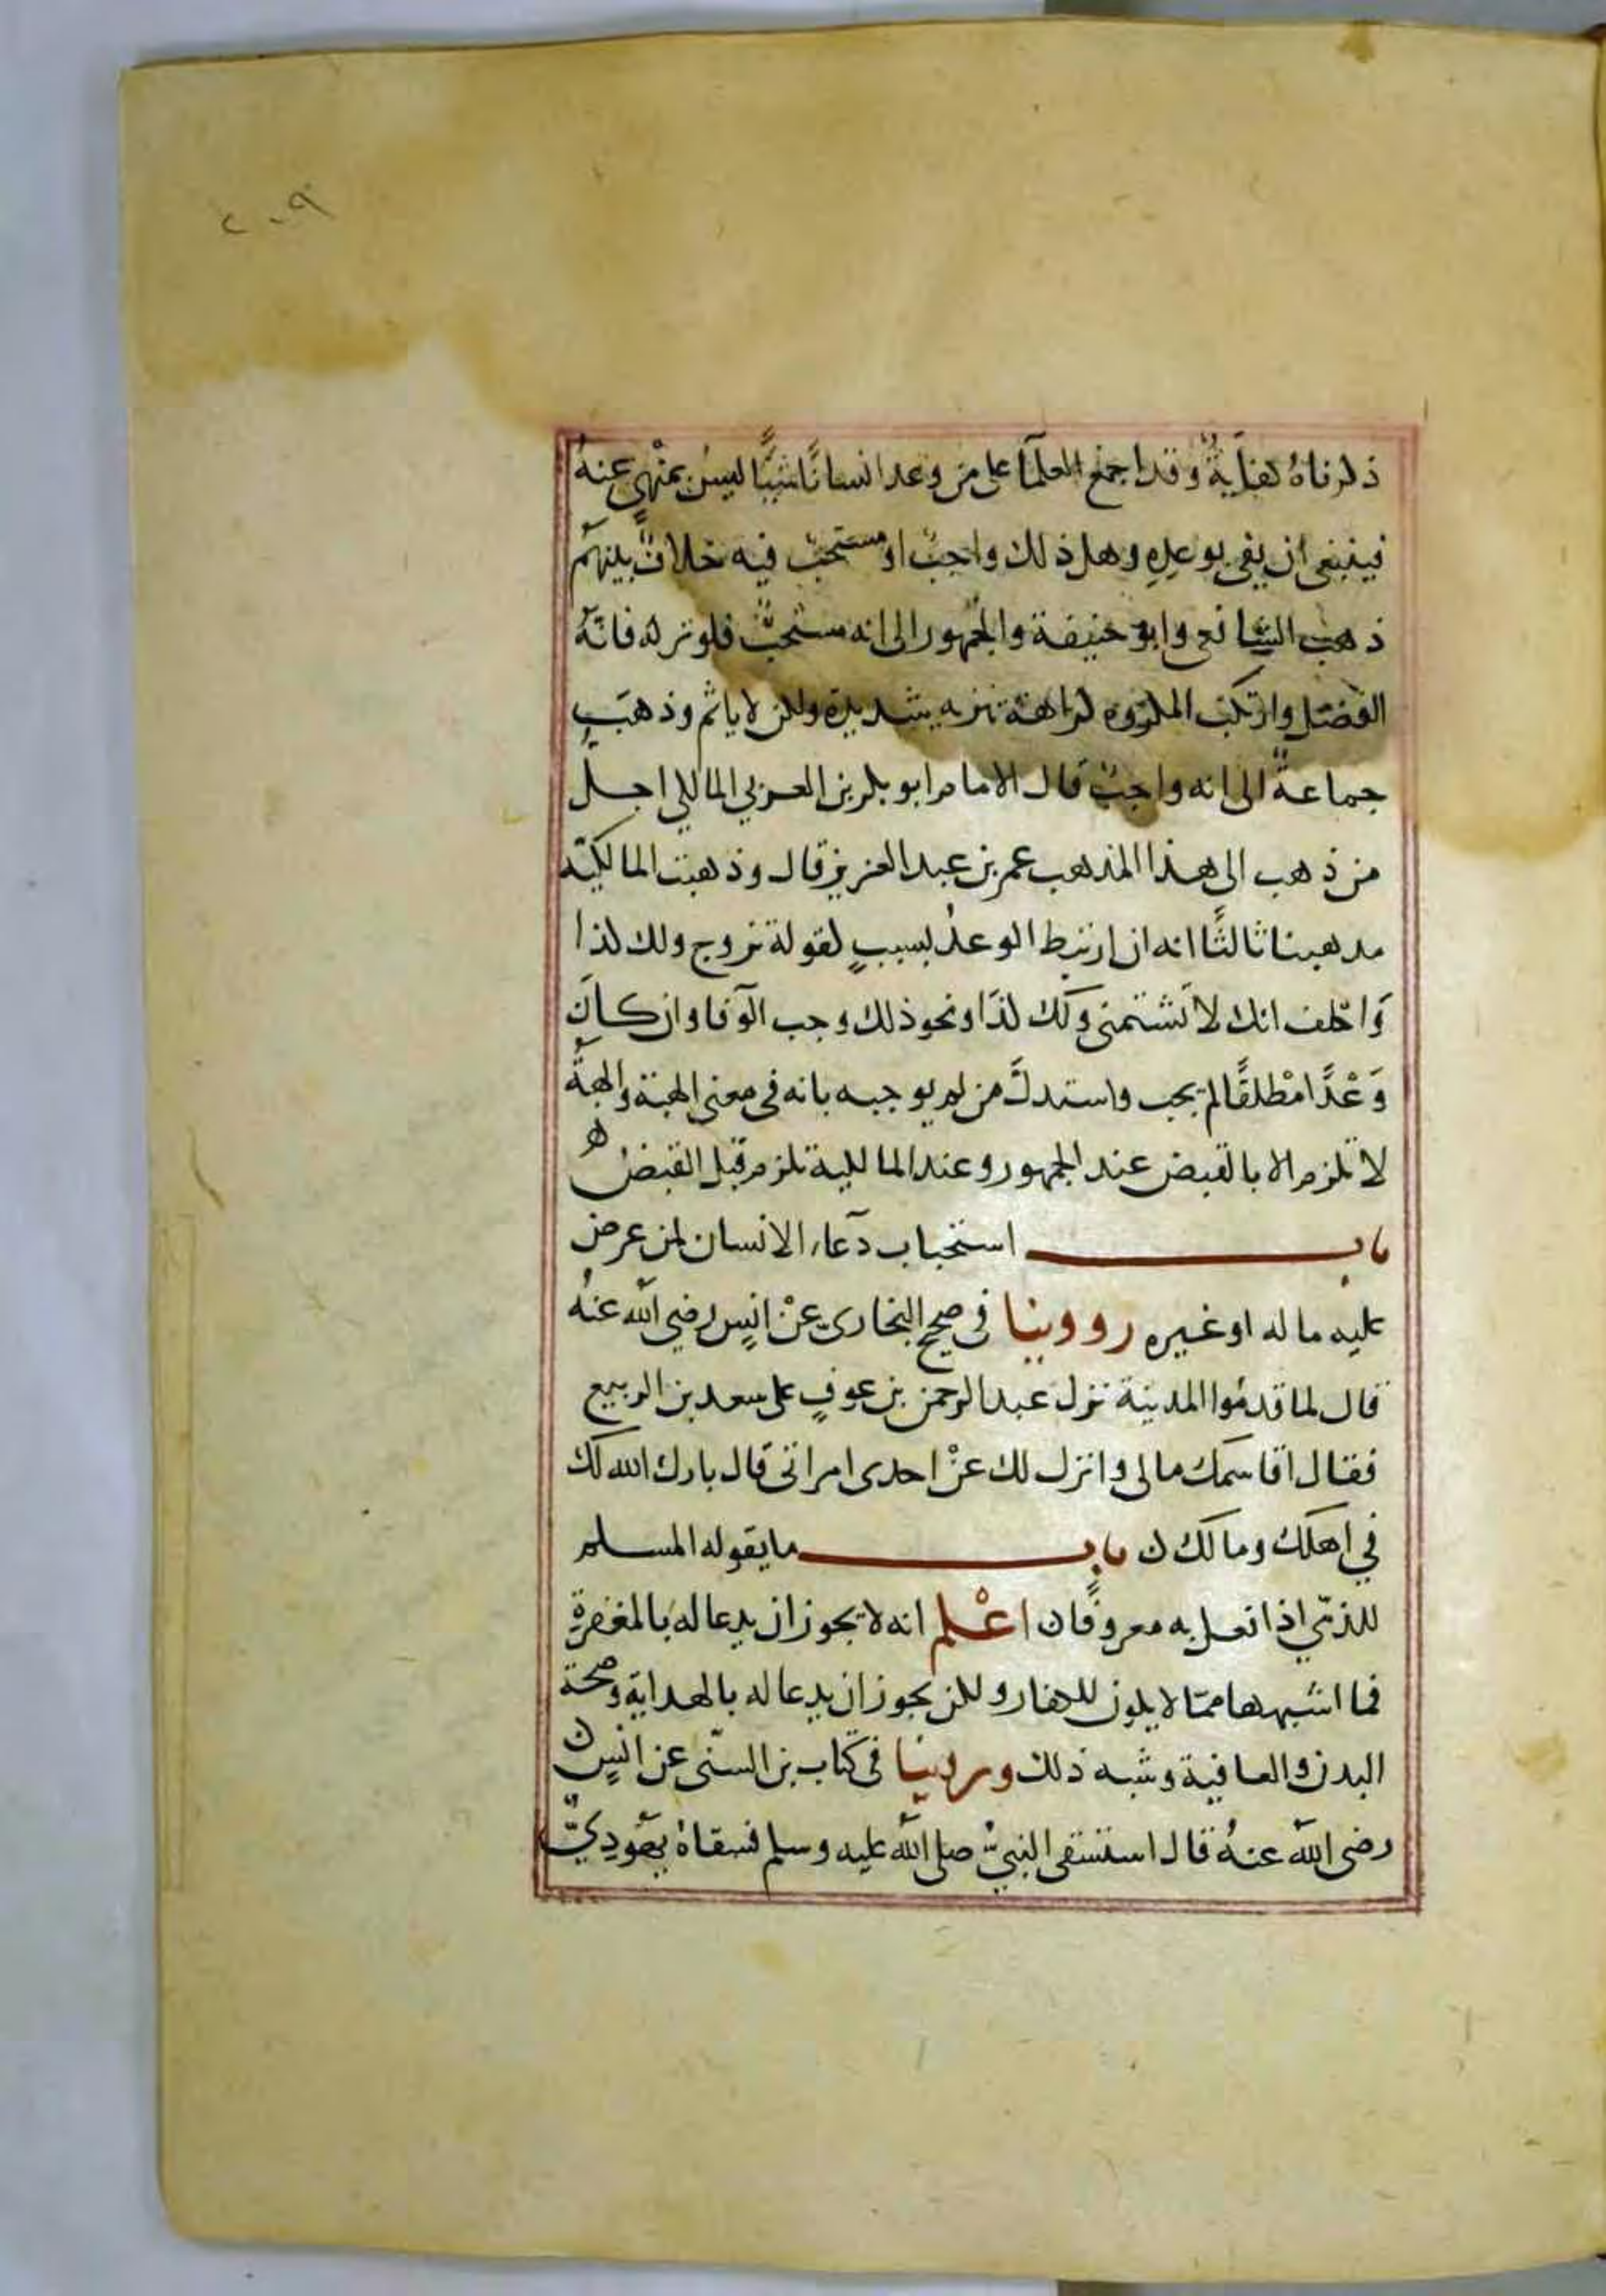 ٢٠٩
ذكرناه كفايةٌ وقد اجمع العلمآ على من وعد انسانًا شيًا ليس بمنْهيٍ عنهُ
فينبغي ان يفي بوعدِهِ وهل ذلك واجبٌ او مستحبٌ فيه خلافٌ بينهم
ذهب الشافعي وابو حنيفة والجمهور الى انه مستحبٌّ فلو تركه فاتهُ
الفضل وارتكب المكروه كراهة تنزيه شديدة ولكن لا ياثم وذهبَ
جماعةٌ الى انه واجبٌ قال الامام ابو بكر بن العربي المالكي اجل
من ذهب الى هذا المذهب عمر بن عبد العزيز قال وذهبت المالكية
مذهبنا ثالثًا انه ان ارتبط الوعدُ بسببٍ كقوله تزوج ولك كذا
وَاحلف انك لا تَشتمني ولك كذا ونحو ذلك وجب الوَفا وان كان
وَعْدًا مطْلقًا لم يجب واستدلَّ من لم يوجبه بانه في معنى الهبة والهبةُ
لا تلزم الا بالقبض عند الجمهور وعند المالكية تلزم قبل القبض ه
باب استحباب دعآء الانسان لمن عرض
عليه ماله او غيره رووينا في صحيح البخاري عنْ انسٍ رضي الله عنهُ
قال لما قدمُوا المدينة نزل عبد الرحمن بن عوفٍ على سعد بن الربيع
فقال اقاسمك مالى وانزل لك عنْ احدى امراتى قال بارك الله لك
في اهلك ومالك ن باب ما يقوله المسلم
للذمّي اذا فعل به معروفًا ن اعْلم انه لا يجوز ان يدعا له بالمغفرةِ
فما اشبهها ممّا لا يكون للكفار ولكن يجوز ان يدعا له بالهداية وصحة
البدن والعافية وشبه ذلك وروينا في كتاب بن السنّي عن انسٍ ن
رضى الله عنهُ قال استسقى النبيُّ صلى الله عليه وسلم فسقاهُ يهَودِيٌّ